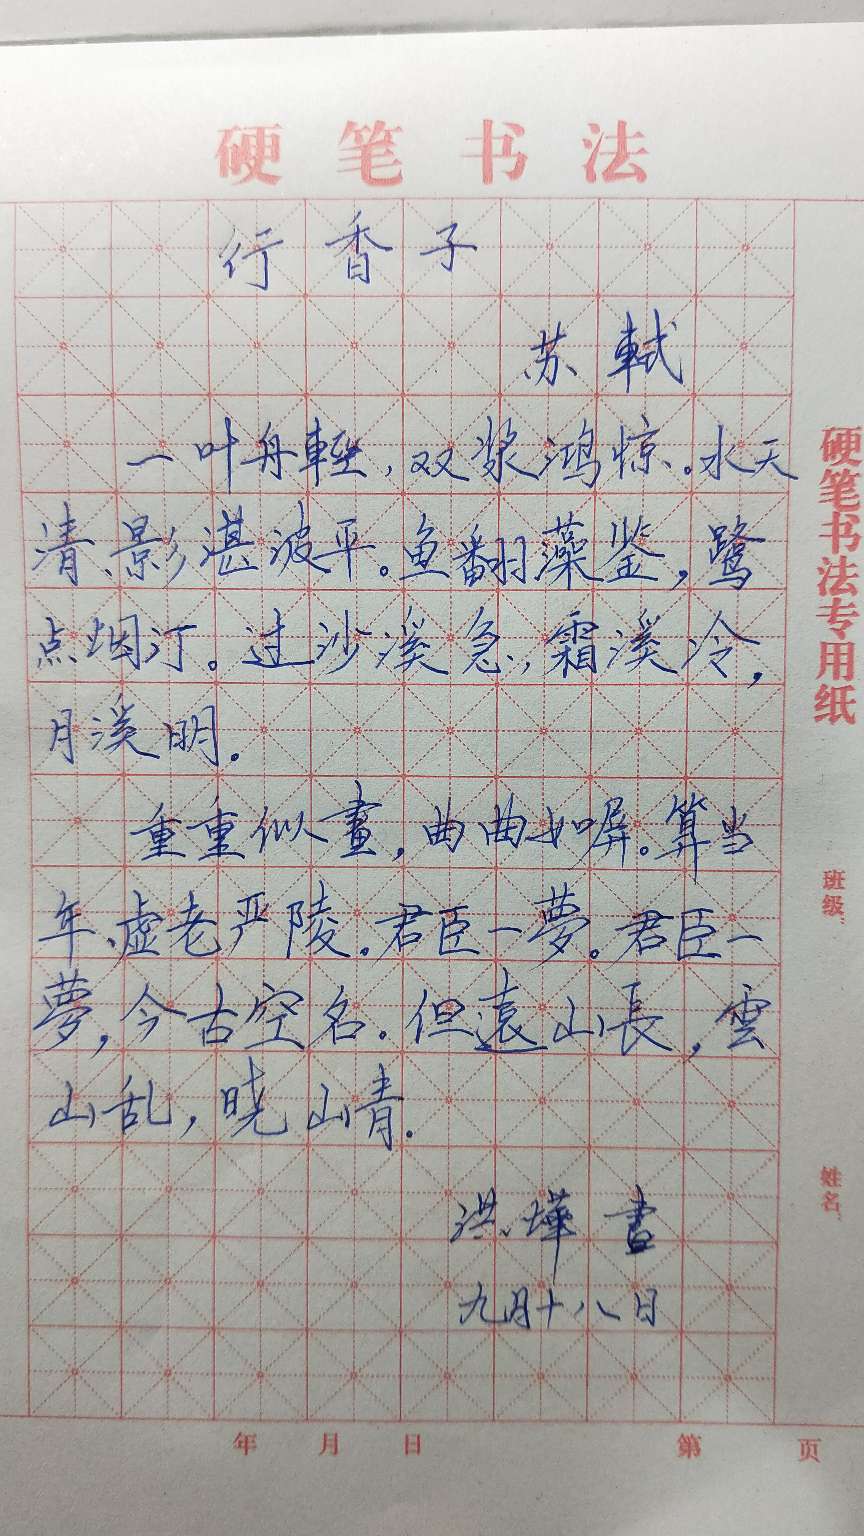 硬笔书法
行香子
苏轼
一叶舟輕,双桨鸿惊。水天
清、影湛波平。鱼翻藻鉴,鹭
点烟汀。过沙溪急,霜溪冷,
月溪明。
重重似畫,曲曲如屏。算当
年、虚老严陵。君臣一夢。君臣一
夢,今古空名。但遠山長,雲
山乱,晓山青。
洪烨書
九月十八日
年 月 日
第 页
硬笔书法专用纸
班级:
姓名: